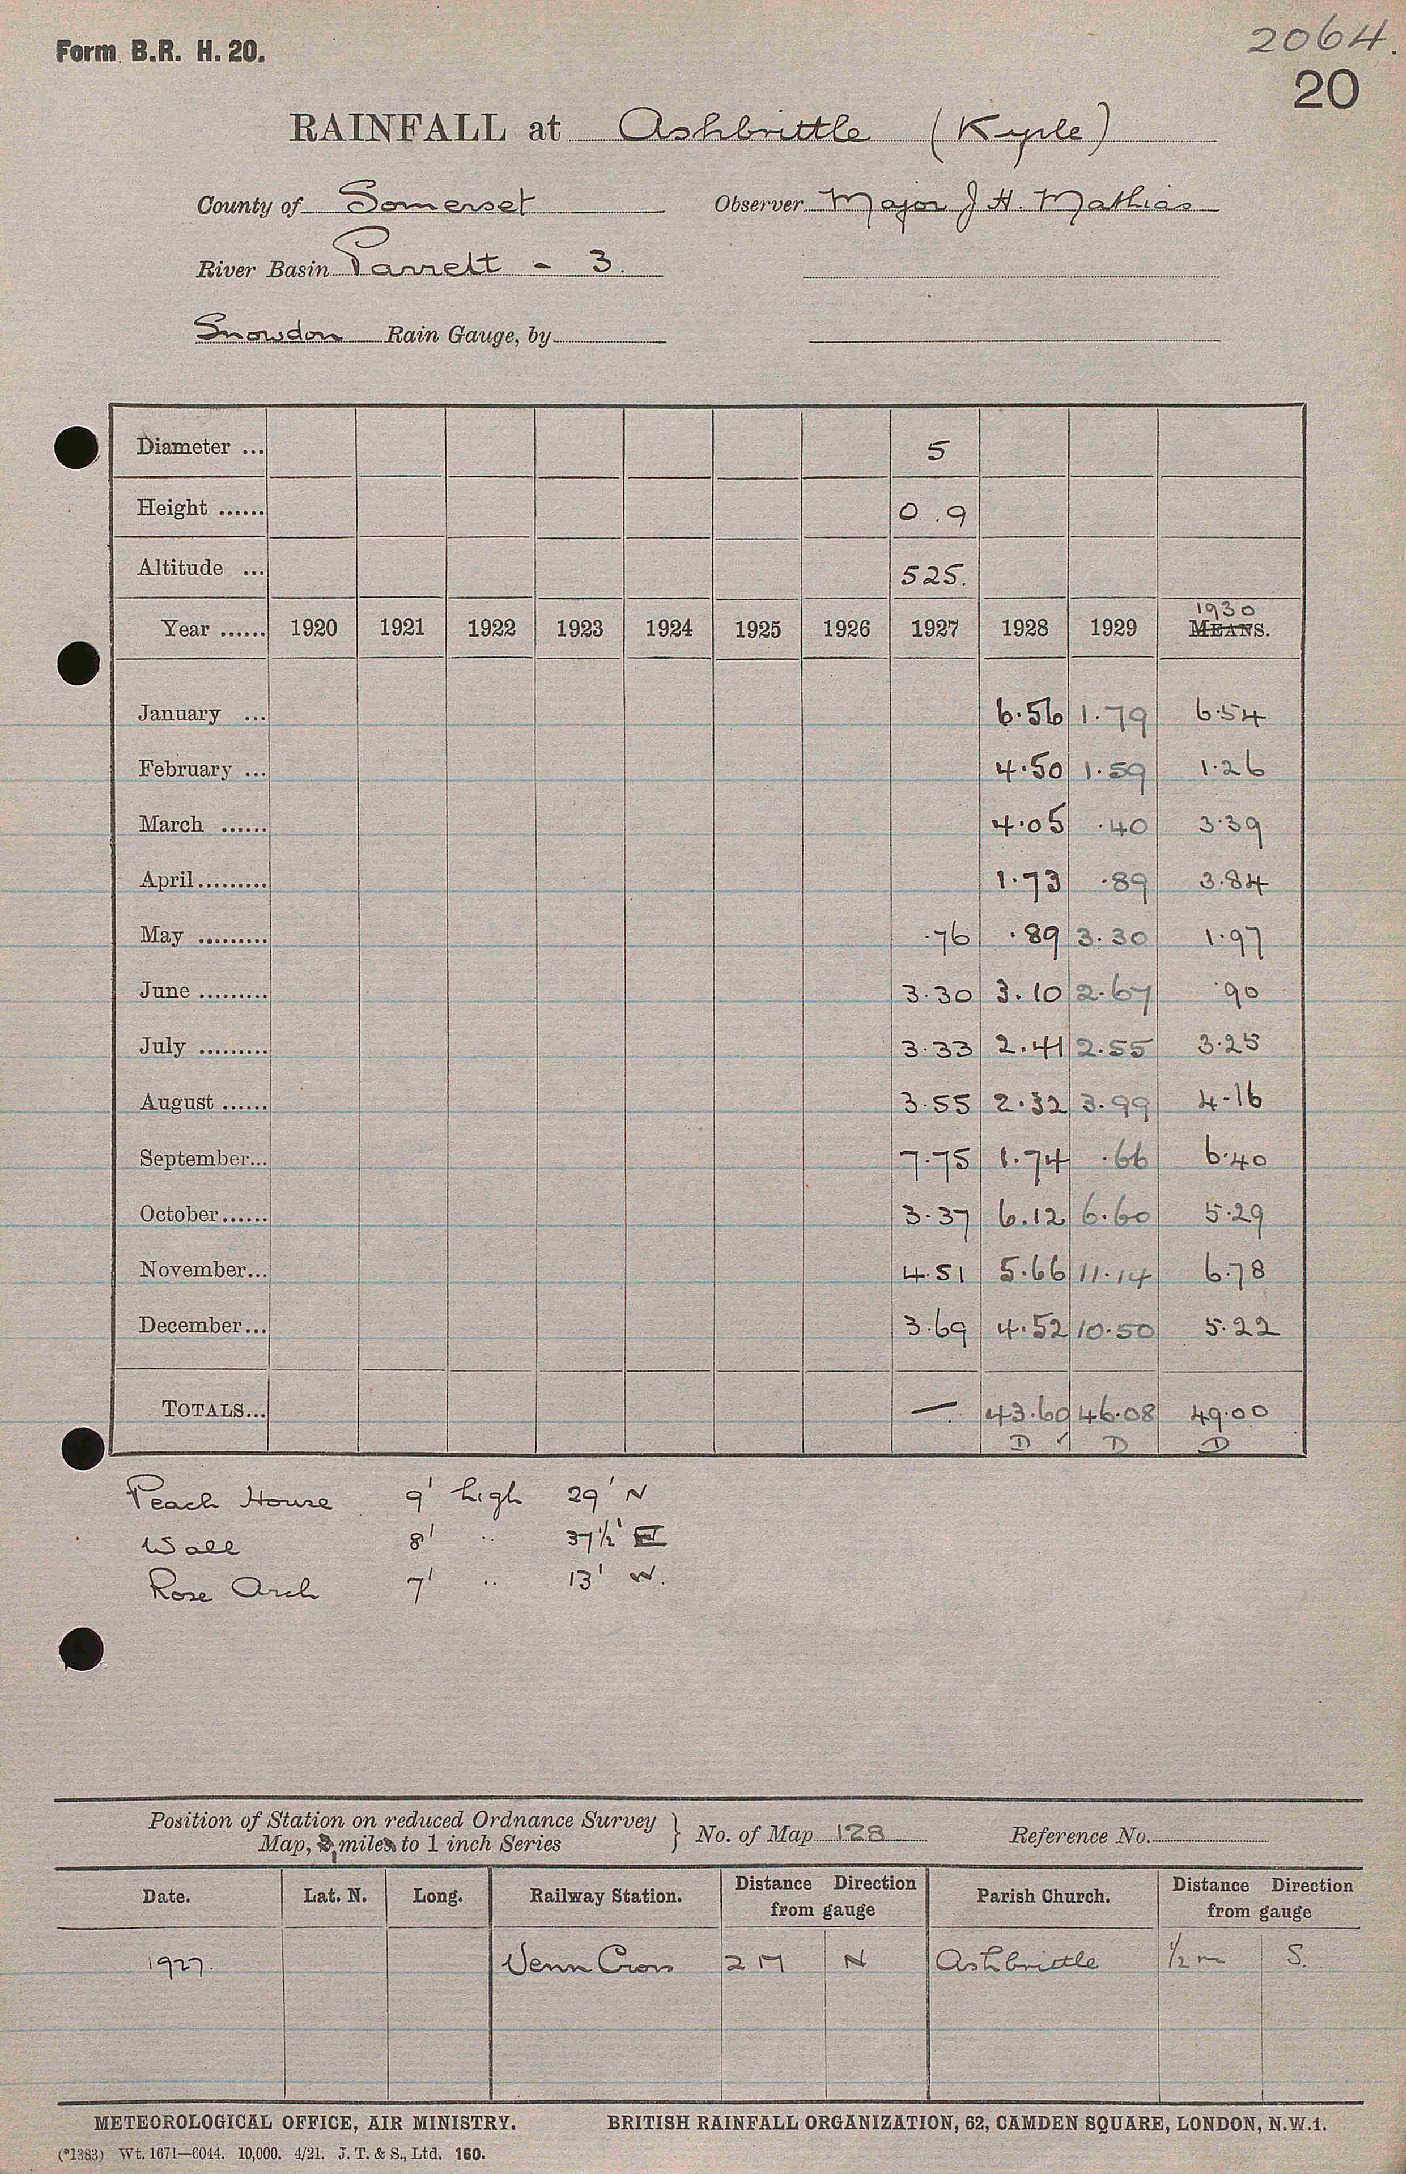 2064.
Form B.R. H. 20.
20
RAINFALL at Ashbrittle (Kyrle)
County of Somerset Observer Major J H. Mathias
River Basin Parrett - 3.
Snowdon Rain Gauge, by
Diameter ... 5
Height ...... 0.9
Altitude ... 525.
1930
Year ...... 1920 1921 1922 1923 1924 1925 1926 1927 1928 1929 MEANS.
January ... 6.56 1.79 6.54
February ... 4.50 1.59 1.26
March ...... 4.05 .40 3.39
April ......... 1.73 .89 3.84
May ......... .76 .89 3.30 1.97
June ......... 3.30 3.10 2.67 .90
July ......... 3.33 2.41 2.55 3.25
August ...... 3.55 2.32 3.99 4.16
September... 7.75 1.74 .66 6.40
October...... 3.37 6.12 6.60 5.29
November... 4.51 5.66 11.14 6.78
December... 3.69 4.52 10.50 5.22
TOTALS... —. 43.60 46.08 49.00
D ✓ D D
Peach House 9' high 29' N
Wall 8' " 37½' E
Rose Arch 7' " 13' W.
Position of Station on reduced Ordnance Survey
Map, miles to 1 inch Series } No. of Map 128 Reference No.
Date. Lat. N. Long. Railway Station. Distance Direction from gauge Parish Church. Distance Direction from gauge
1927. Venn Cross 2 M N Ashbrittle ½ m S.
METEOROLOGICAL OFFICE, AIR MINISTRY. BRITISH RAINFALL ORGANIZATION, 62, CAMDEN SQUARE, LONDON, N.W.1.
(*1383) Wt. 1671—6044. 10,000. 4/21. J. T. & S., Ltd. 160.